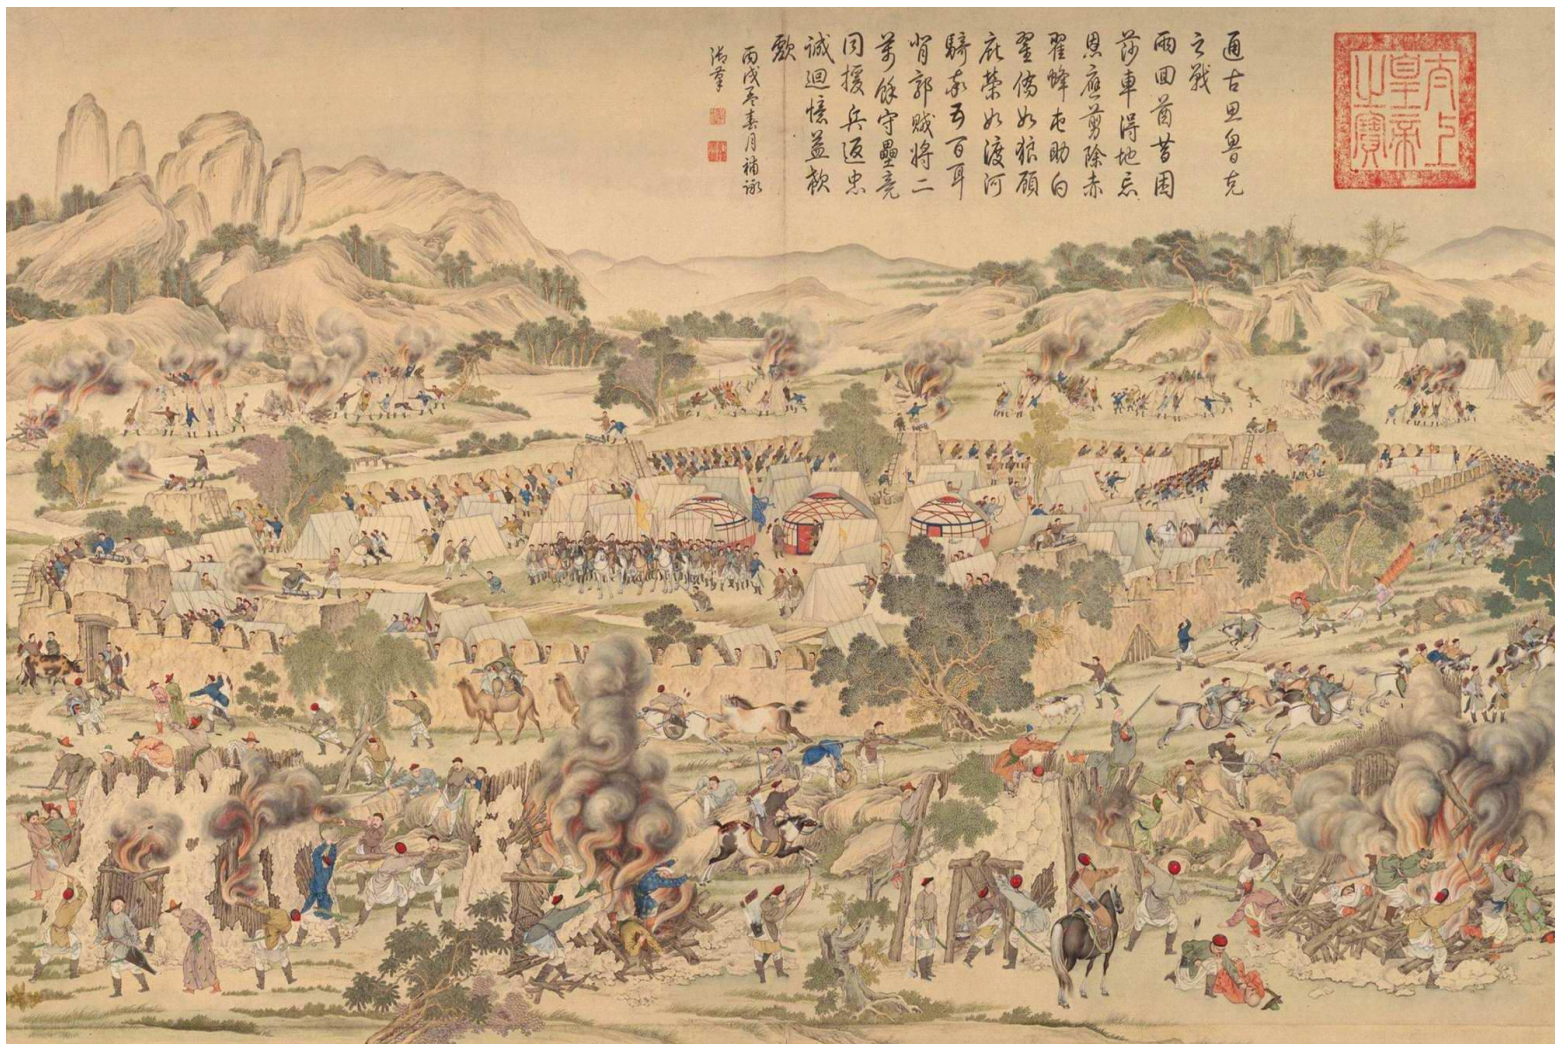 太上
皇帝
之寶
通古思魯克
之戰
兩回酋昔困
莎車得地忘
恩應剪除赤
翟蜂屯助白
翟僑如狼顧
庇榮如渡河
騎五百耳
背郭賊將二
萬餘守壘竟
同援兵返忠
誠迴憶益欷
歔
丙戌暮春月補詠
御筆